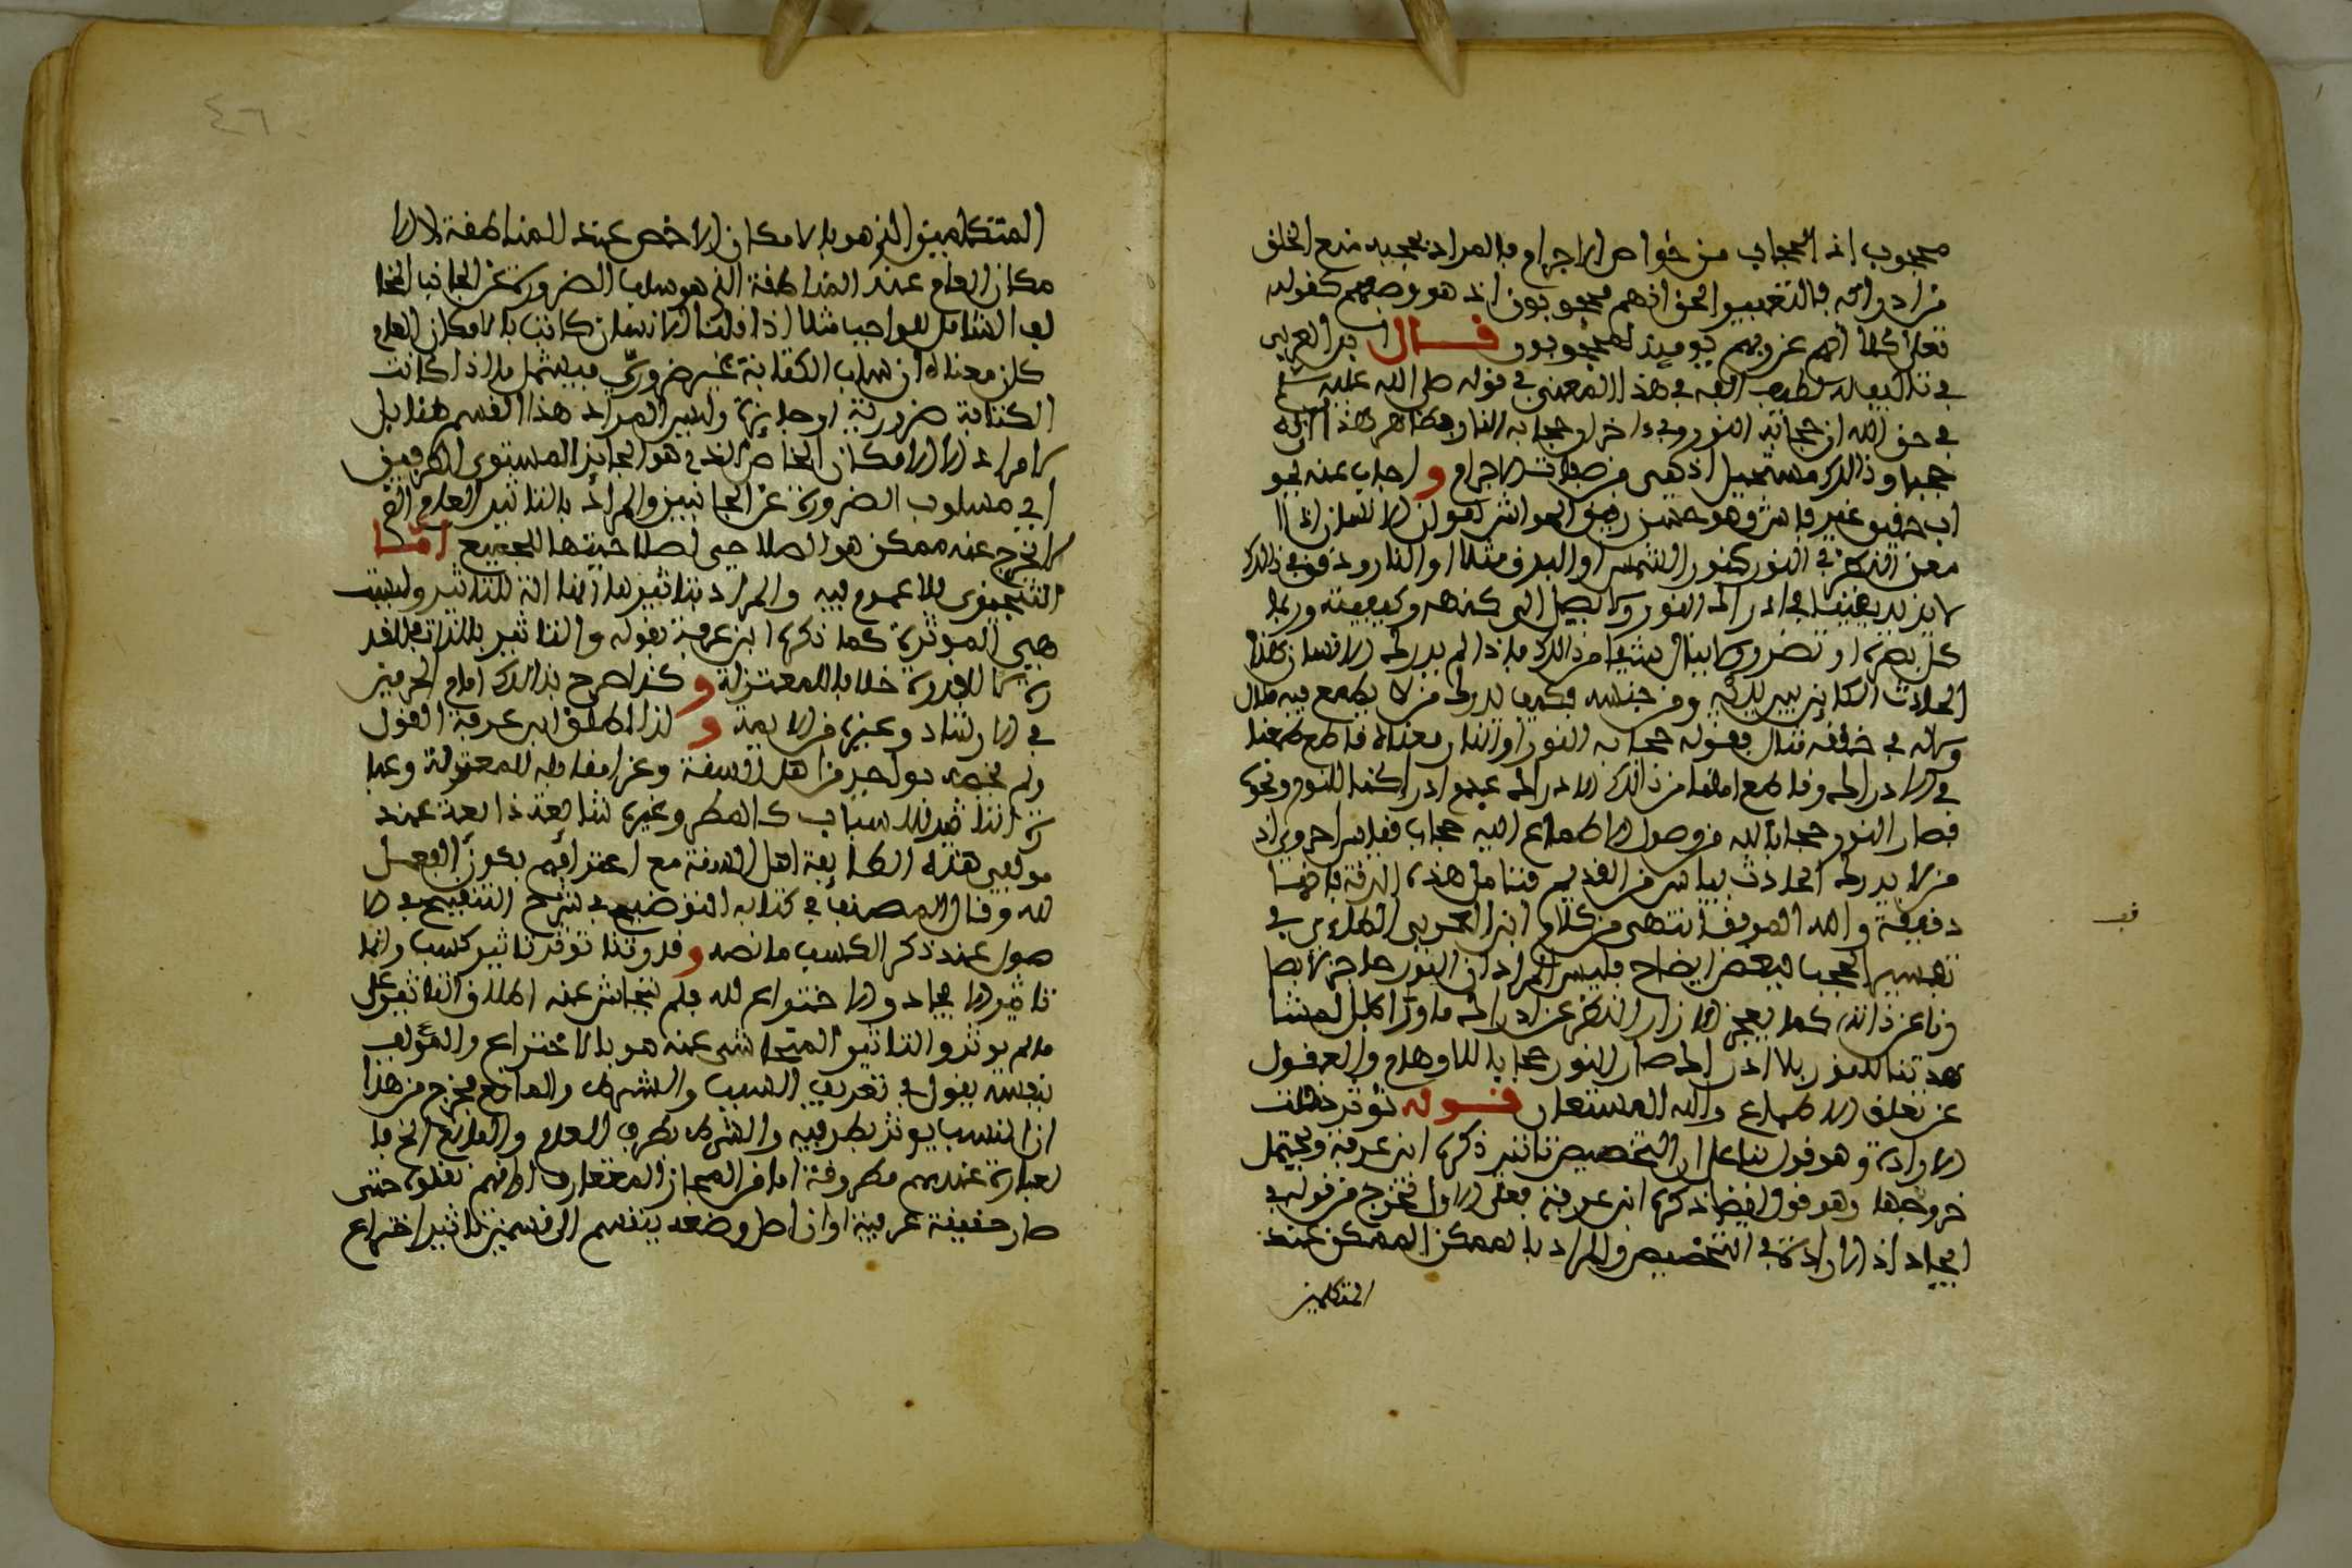 محجوب اذ الحجاب من خواص الاجرام فالمراد بحجبه منع الخلق
من ادراكه فالتعبير الحق انهم محجوبون اذ هو وصفهم كقوله
تعلى كلا انهم عن ربهم يوميذ لمحجوبون قال ابن العربي
في تاليف له لطيف الفه في هذا المعنى في قوله صلى الله عليه وسلم
في حق الله ان حجابه النور وفي اخر او حجابه النار وظاهر هذا ان له
حجبا وذالك مستحيل اذ هي من صفات الاجرام و اجاب عنه بجو
اب حقيق غير فاش وهو حسن رقيق الحواش نقول ان الانسان اذا ا
معن النظر في النور كنور الشمس او البدر مثلا او النار ودقق في ذالك
لا يزيد يقينا في ادراك النور ولا يصل الى كنهه وكيفيته وربما
كل بصره او تضرر ولا ينال شيئا من ذالك فاذا لم يدرك الانسان هذا
الحادث الكاين بين يديه ومن جنسه فكيف يدرك من لا يطمع فيه ملال
ولا له في خلقه مثال فقوله حجابه النور او النار معناه قاطع طمعنا
في الادراك وقاطع املنا من ذالك الادراك عدم ادراكنا للنور ونحوه
فصار النور حجابا لله من وصول الاطماع اليه حجاب فقياس احروي اذ
من لا يدرك الحادث بياس من القديم فتامل هذه الدقة فانها
دقيقة والله الموفق انتهى من كلام ابن العربي الطاءي في
تفسير الحجب فبعض ايضاح فليس المراد ان النور حاجز لابصا
رنا عن ذاته كما يعجز الازار النظر عن ادراك ما وراءه بل لمشا
هدتنا للنور بلا ادراك صار النور حجابا للاوهام والعقول
عن تعلق الاطماع والله المستعان قوله تؤثر دخلت
الارادة وهو قول بناء على ان التخصيص تاثير ذكره ابن عرفة ويحتمل
خروجها وهو قول ايضا ذكره ابن عرفة فعلى الاول تخرج من قوله في
ايجاد اذ الارادة في التخصيص والمراد بالممكن الممكن عند
المتكلمين
قف
٤٦
المتكلمين الذي هو بالامكان الاخص عند المناطقة لا الا
مكان العام عند المناطقة الذي هو سلب الضرورة عن الجانب المخا
لف الشامل للواجب مثلا اذا قلنا الانسان كاتب بالامكان العام
كان معناه ان سلب الكتابة غير ضروري فيشمل ما اذا كانت
الكتابة ضرورية او جايزة وليس المراد هذا القسم هنا بل
لا مراد الا الامكان الخاص الذي هو الجايز المستوى الطرفين
اي مسلوب الضرورة عن الجانبين والمراد بالتاثير العام الذي
لا يخرج عنه ممكن هو الصلاحي لصلاحيتها للجميع اما
التنجيزي فلا عموم فيه والمراد بتاثيرها انها الة للتاثير وليست
هي الموثرة كما ذكره ابن عرفة بقوله والتاثير بالذات للقد
رة لا للقدرة خلافا للمعتزلة و كذا صرح بذالك امام الحرمين
في الارشاد وغيره من الايمة و لذا اطلق ابن عرفة القول
ولم يخصه بواحد من اهل السنة وعزا مقابله للمعتزلة وعبا
رة التاثير للاسباب كالمطر وغيره شايعة ذايعة عند
مولفي هذه الطايفة اهل السنة مع اعترافهم بكون الفعل
لله وقال المصنف في كتابه التوضيح في شرح التنقيح في الا
صول عند ذكر الكسب ما نصه و قدرتنا توثر تاثير كسب وانما
تاثير الايجاد والاختراع لله فلم يتحاش عنه اطلاق التاثير على
ما لم يوثر والتاثير المتحاشى عنه هو بالاختراع والمؤلف
نفسه يقول في تعريف السبب والشرط والمانع مخرج من هذا
ان السبب يوثر بطرفيه والشرط بطرف العدم والمانع الخ فا
لعبارة عندهم مطروقة اما من المجاز المتعارف او انهم نقلوه حتى
صار حقيقة عرفية او ان اصل وضعه ينقسم الى قسمين تاثير اختراع